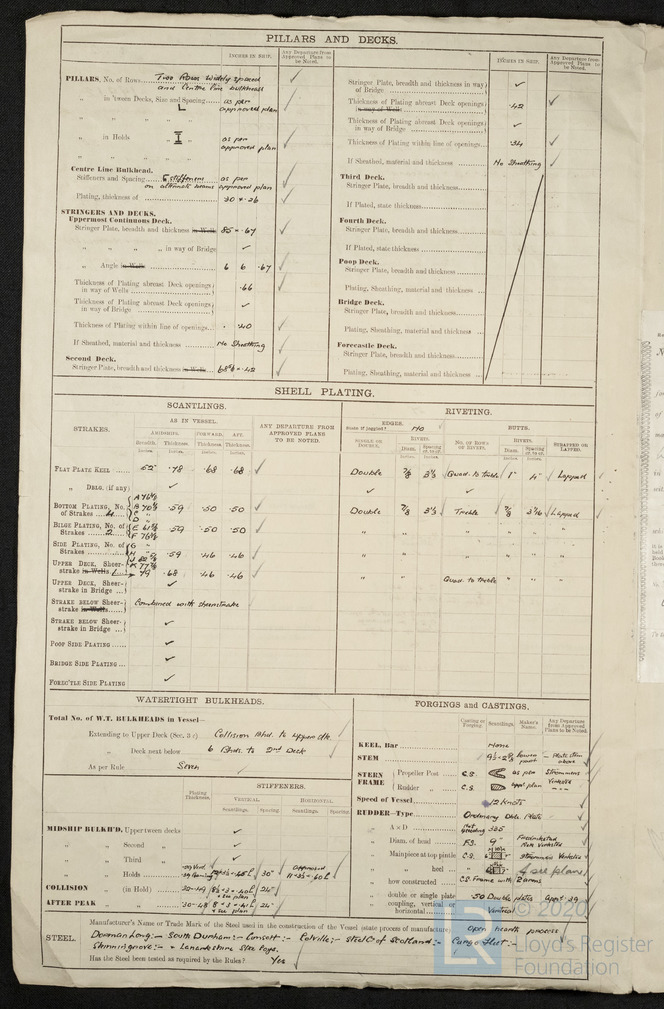 PILLARS AND DECKS.
INCHES IN SHIP.
Any Departure from Approved Plans to be Noted.
PILLARS, No. of Rows
Two Rows Widely spaced
and Centre line bulkhead
„ in 'tween Decks, Size and Spacing
as per
approved plan
„ in Holds
I
as per
approved plan
Centre Line Bulkhead.
Stiffeners and Spacing
stiffeners as per
on alternate beams approved plan
Plating, thickness of
·30 + ·26
STRINGERS AND DECKS.
Uppermost Continuous Deck.
Stringer Plate, breadth and thickness in Wells
85 × ·67
„ „ „ „ in way of Bridge
„ Angle in Wells
6 6 ·67
Thickness of Plating abreast Deck openings in way of Wells
·66
Thickness of Plating abreast Deck openings in way of Bridge
Thickness of Plating within line of openings
·40
If Sheathed, material and thickness
No Sheathing
Second Deck.
Stringer Plate, breadth and thickness in Wells
INCHES IN SHIP.
Any Departure from Approved Plans to be Noted.
Stringer Plate, breadth and thickness in way of Bridge
Thickness of Plating abreast Deck openings in way of Wells
·42
Thickness of Plating abreast Deck openings in way of Bridge
Thickness of Plating within line of openings
·34
If Sheathed, material and thickness
No Sheathing
Third Deck.
Stringer Plate, breadth and thickness
If Plated, state thickness
Fourth Deck.
Stringer Plate, breadth and thickness
If Plated, state thickness
Poop Deck.
Stringer Plate, breadth and thickness
Plating, Sheathing, material and thickness
Bridge Deck.
Stringer Plate, breadth and thickness
Plating, Sheathing, material and thickness
Forecastle Deck.
Stringer Plate, breadth and thickness
Plating, Sheathing, material and thickness
SHELL PLATING.
SCANTLINGS.
STRAKES.
AS IN VESSEL.
AMIDSHIPS. FORWARD. AFT.
Breadth. Thickness. Thickness. Thickness.
Inches. Inches. Inches. Inches.
ANY DEPARTURE FROM APPROVED PLANS TO BE NOTED.
RIVETING.
EDGES.
State if joggled?
No
BUTTS.
SINGLE OR DOUBLE.
RIVETS.
Diam. Spacing cr. to cr.
Inches. Inches.
NO. OF ROWS OF RIVETS.
RIVETS.
Diam. Spacing cr. to cr.
Inches. Inches.
STRAPPED OR LAPPED.
FLAT PLATE KEEL
52 ·78 ·68 ·68
Double 7/8 3½ Quad. to treble 1" 4" Lapped
„ DBLG. (if any)
BOTTOM PLATING, No. of Strakes 4
·59 ·50 ·50
Double 7/8 3½ Treble 7/8 Lapped
BILGE PLATING, No. of Strakes 2
·59 ·50 ·50
SIDE PLATING, No. of Strakes
·59 ·46 ·46
UPPER DECK, Sheerstrake in Wells
79 ·68 ·46 ·46
Quad. to treble
UPPER DECK, Sheerstrake in Bridge
STRAKE BELOW Sheerstrake in Wells
Combined with sheerstrake
STRAKE BELOW Sheerstrake in Bridge
POOP SIDE PLATING
BRIDGE SIDE PLATING
FOREC'TLE SIDE PLATING
WATERTIGHT BULKHEADS.
Total No. of W.T. BULKHEADS in Vessel—
Extending to Upper Deck (Sec. 3 c)
Collision Bhd. to Upper dk.
„ Deck next below
6 Bhds. to 2nd Deck
As per Rule
Seven
Plating Thickness.
STIFFENERS.
VERTICAL. HORIZONTAL.
Scantlings. Spacing. Scantlings. Spacing.
MIDSHIP BULKH'D, Upper tween decks
„ „ Second „
„ „ Third „
„ „ Holds
30"
COLLISION „ (in Hold)
24"
see plan
AFTER PEAK „ „
24"
see plan
FORGINGS and CASTINGS.
Casting or Forging. Scantlings. Maker's Name. Any Departure from Approved Plans to be Noted.
KEEL, Bar
None
STEM
lower part
Plate stem above
STERN FRAME
Propeller Post
C.S. as per
Rudder „
C.S. appd plan
Speed of Vessel
12 Knots
RUDDER—Type
Ordinary Dble. Plate
„ A × D
385
„ Diam. of head
F.S. 9"
„ Mainpiece at top pintle
C.S.
„ „ heel „
see plan
„ how constructed
C.S. Frame with 2 arms
„ double or single plate
·50 Double plates
„ coupling, vertical or horizontal
Vertical
STEEL.
Manufacturer's Name or Trade Mark of the Steel used in the construction of the Vessel (state process of manufacture)
Open hearth process
Dorman Long:– South Durham:– Consett:– Colville:– Steel Co. of Scotland:– Cargo Fleet:–
Skinningrove:– + Lanarkshire Steel Coys.
Has the Steel been tested as required by the Rules?
Yes
© 2020
LR
Lloyd's Register
Foundation